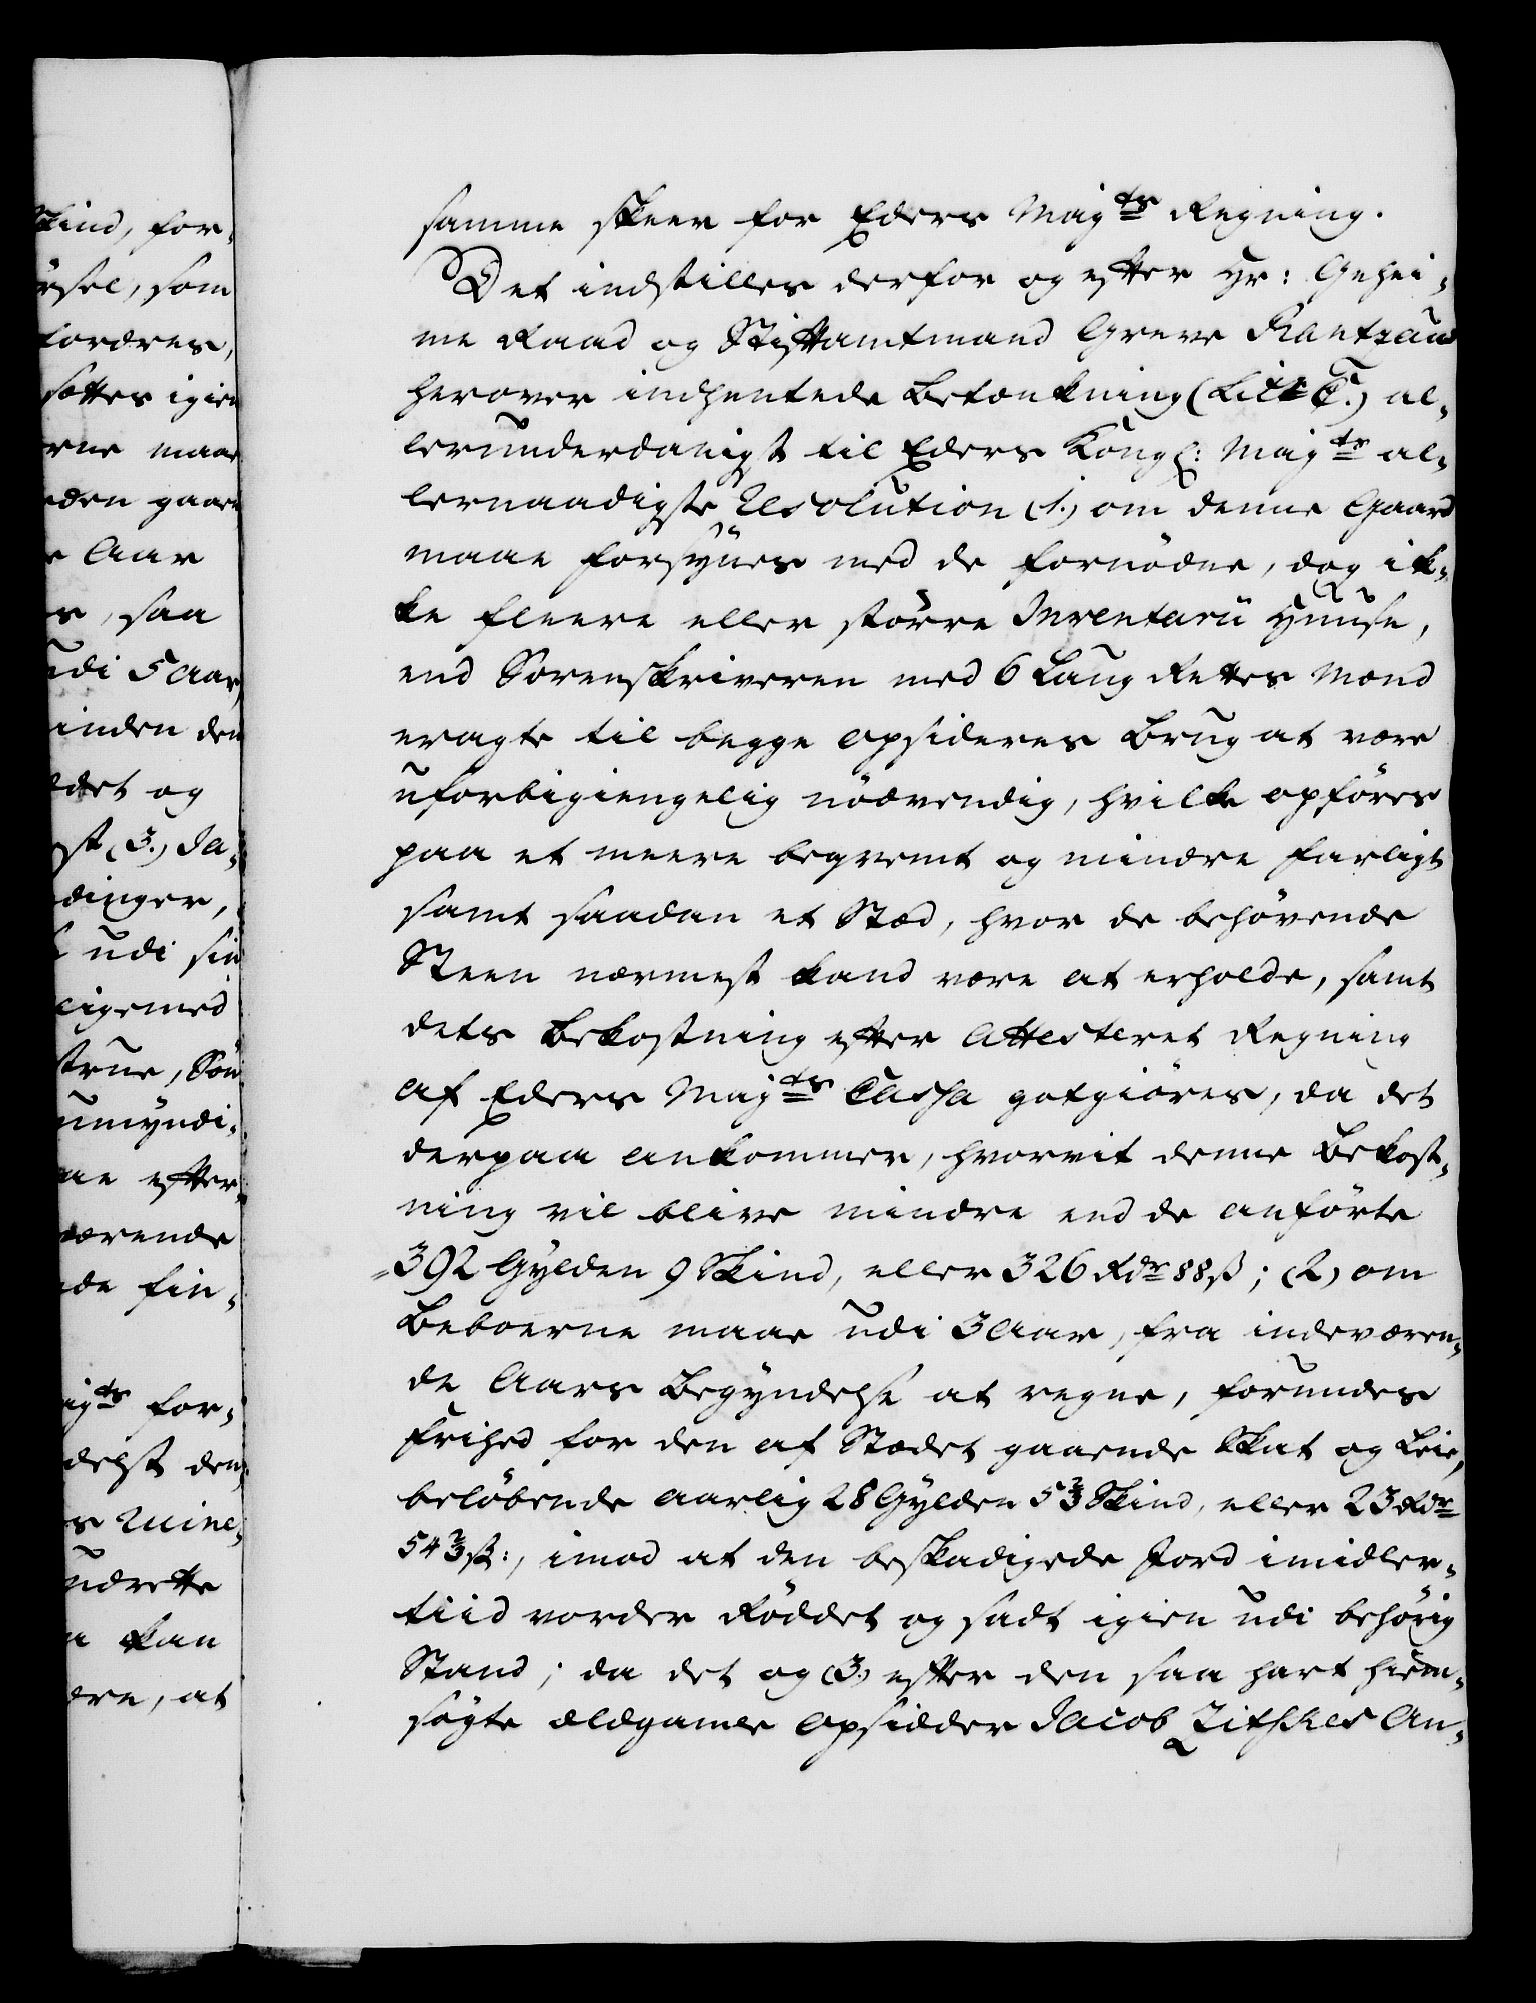 Skind, for-
rsel, som
fordres,
sættes igien
rne maae
eden gaaen
e Aar
s, saa
udi 5 Aar,
inden den
det og
st (3.) Ja-
dinger,
udi sin
ligemed
strue, Søn
umyndi-
ne efter-
værende
de fin-
igts for-
delst den
s Ruine-
undrette
n kan
dre, at
samme skeer for Eders Majts Regning.
Det indstilles derfor og efter Hr: Gehei-
me Raad og Stiftamtmand Greve Rantzaus
herover indhentede Betænkning (Litr C.) al-
lerunderdanigst til Eders Kongl: Majts al-
lernaadigste Resolution (1.) om denne Gaard
maae forsynes med de fornødne, dog ik-
ke fleere eller større Inventarii Huuse,
end Sorenskriveren med 6 Laug Rettes Mænd
eragte til begge Opsideres Brug at være
uforbigiengelig nødvendig, hvilke opføres
paa et meere beqvemt og mindre farligt
samt saadan et Stæd, hvor de behøvende
Steen nærmest kand være at erholde, samt
dets Bekostning efter Attesteret Regning
af Eders Majts Cassa gotgiøres, da det
derpaa ankommer, hvorvit denne Bekost-
ning vil blive mindre end de anførte
392 Gylden 9 Skind, eller 326 Rdr 88 ß; (2) om
Beboerne maae udi 3 Aar, fra indeværen-
de Aars Begyndelse at regne, forundes
Frihed for den af Stædet gaaende Skat og Leie,
beløbende aarlig 28 Gylden 5⅔ Skind, eller 23 Rdr
54⅔ ß:, imod at den beskadigede Jord imidler-
tiid vorder Røddet og sadt igien udi behørig
Stand; da det og (3.) efter den saa hart hiem-
søgte ældgamle Opsidder Jacob Zitskes An-